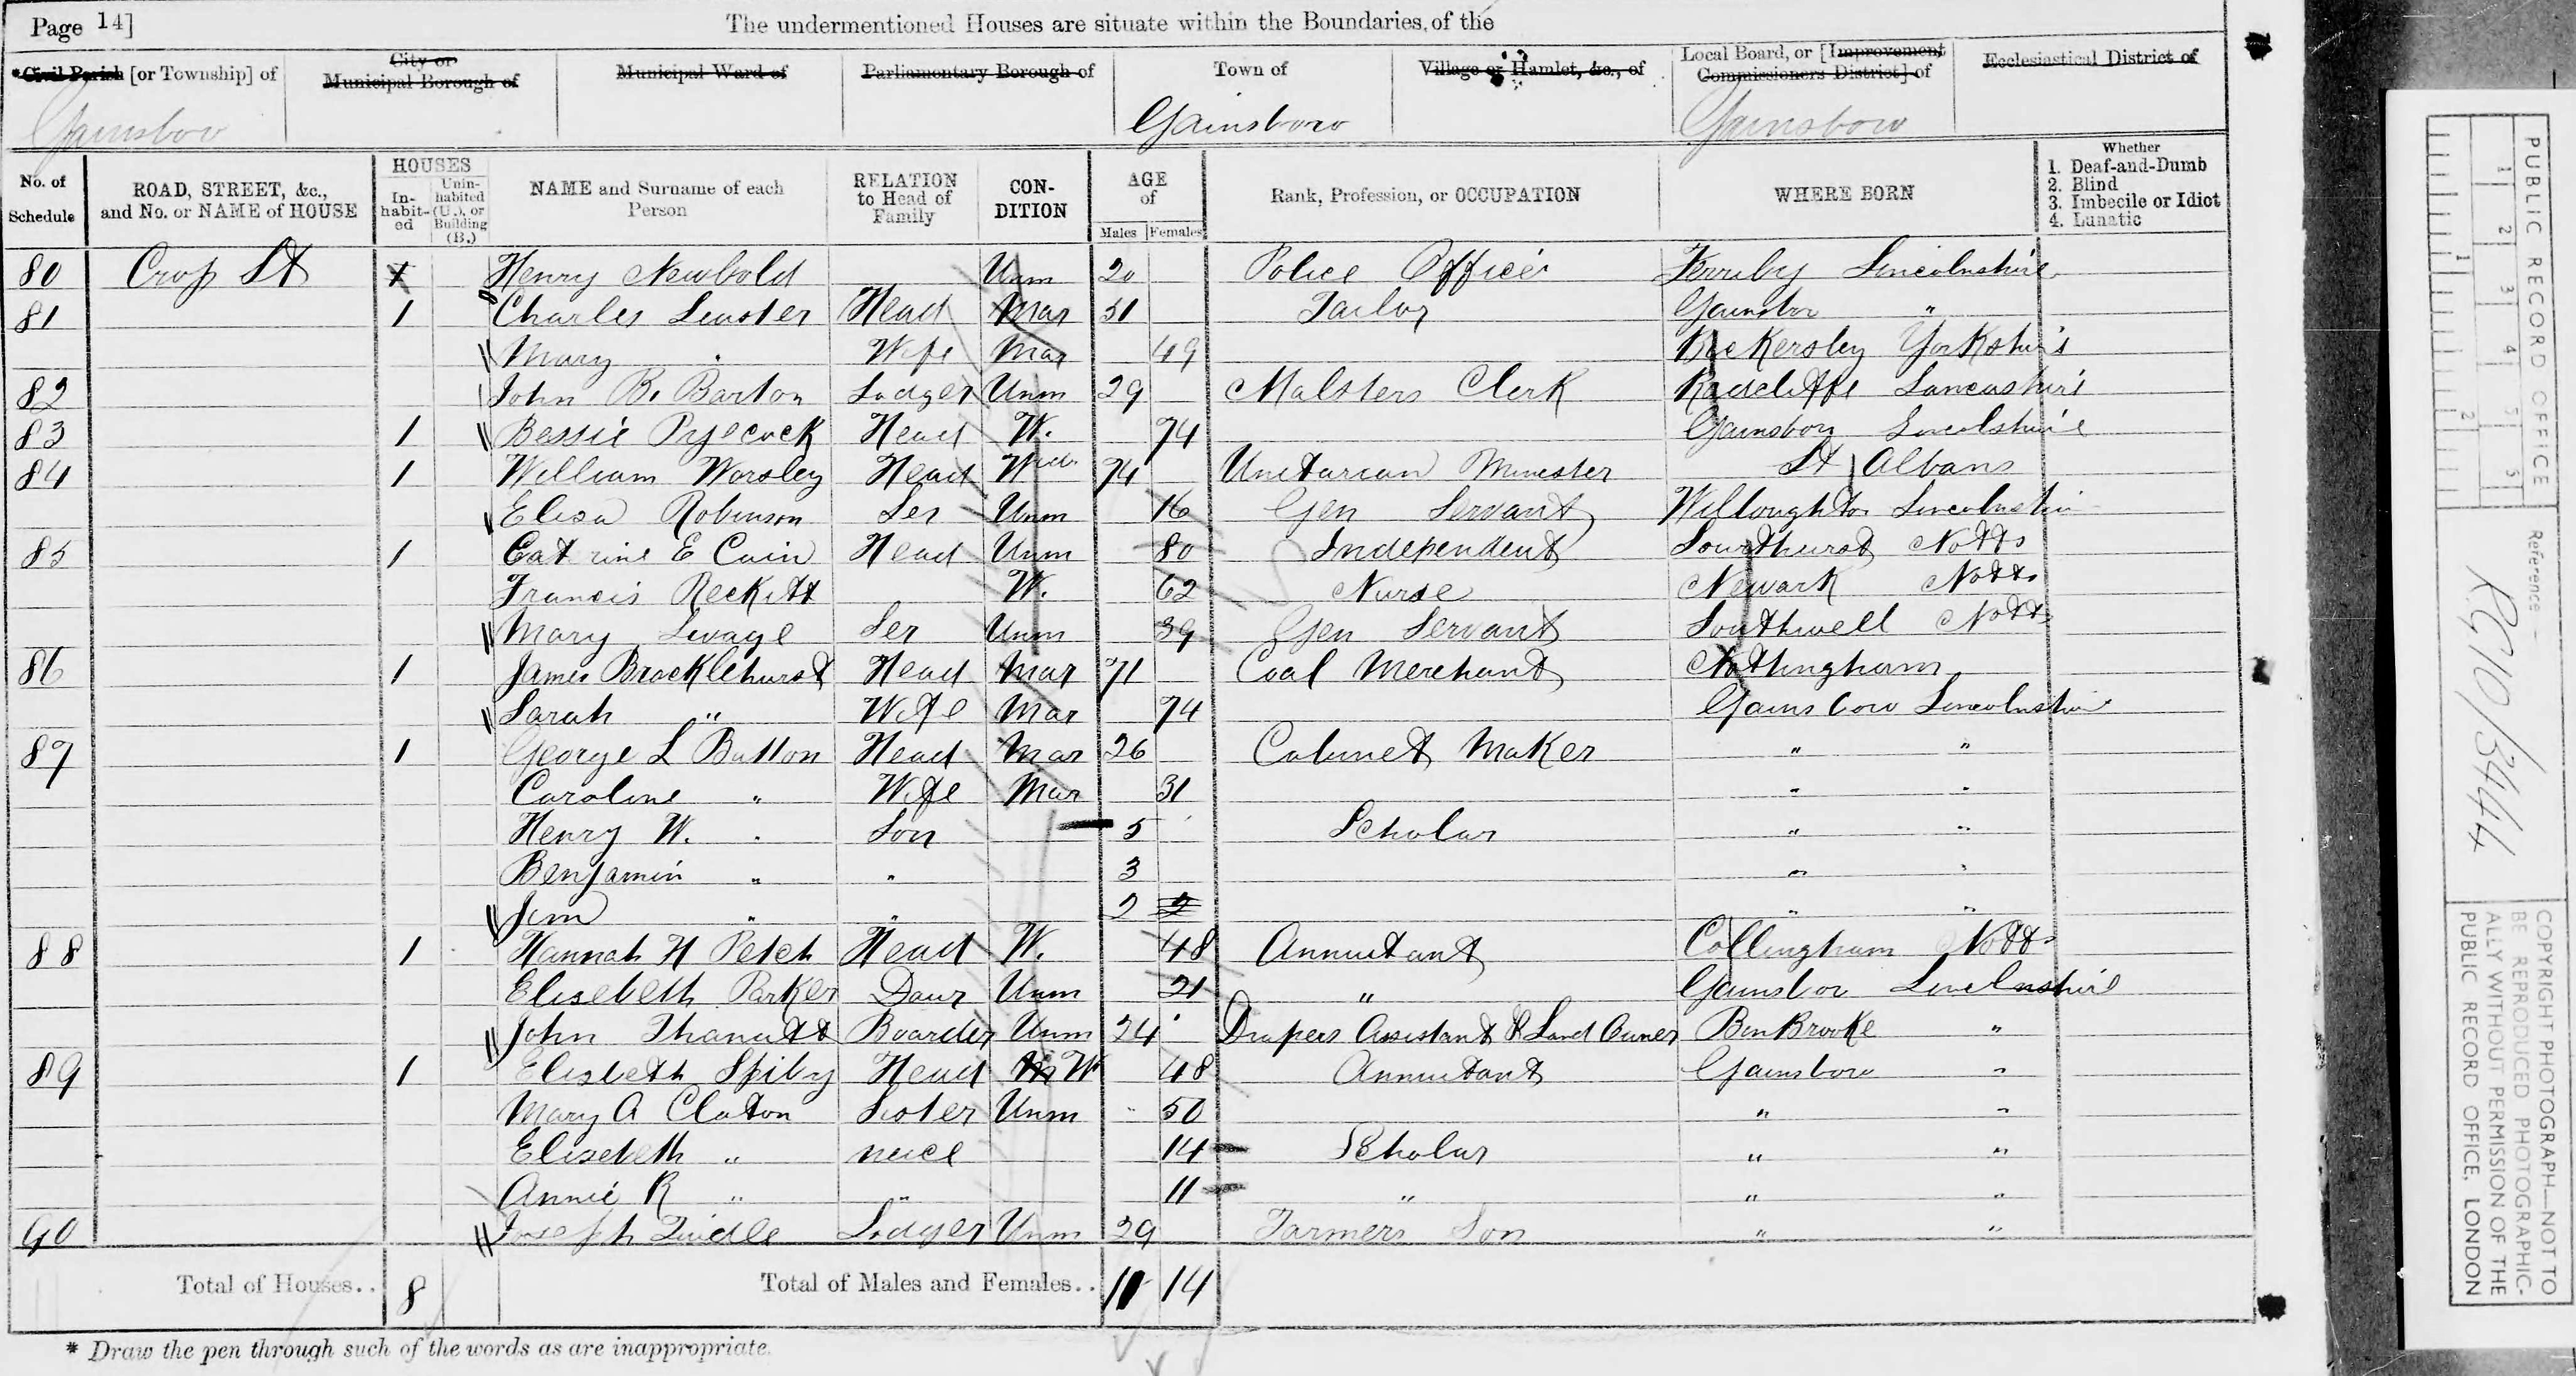 Page 14]
The undermentioned Houses are situate within the Boundaries of the
*Civil Parish [or Township] of
City or Municipal Borough of
Municipal Ward of
Parliamentary Borough of
Town of
Village or Hamlet, &c., of
Local Board, or [Improvement Commissioners District] of
Ecclesiastical District of
Gainsboro
Gainsboro
Gainsboro
No. of Schedule
ROAD, STREET, &c., and No. or NAME of HOUSE
HOUSES
In-habit-ed
Unin-habited (U.), or Building (B.)
NAME and Surname of each Person
RELATION to Head of Family
CON-DITION
AGE of
Males
Females
Rank, Profession, or OCCUPATION
WHERE BORN
Whether
1. Deaf-and-Dumb
2. Blind
3. Imbecile or Idiot
4. Lunatic
80 Cross St Henry Newbold Unm 20 Police Officer Ferriby Lincolnshire
81 1 Charles Head Mar 51 Tailor Gainsbro "
Mary Wife Mar 49 Yorkshire
82 John B. Barton Lodger Unm 29 Malsters Clerk Radcliffe Lancashire
83 1 Bessie Pyecock Head W. 74 Gainsboro Lincolshire
84 1 William Worsley Head Wid. 74 Unitarian Minester St Albans
Elisa Robinson Ser Unm 16 Gen Servant Willoughton Lincolnshire
85 1 Catrine E Cain Head Unm 80 Independent Notts
Francis Reckitt W. 62 Nurse Newark Notts
Mary Ser Unm 39 Gen Servant Southwell Notts
86 1 James Brocklehurst Head Mar 71 Coal Merchant Nottingham
Sarah " Wife Mar 74 Gainsboro Lincolnshire
87 1 George L Button Head Mar 26 Cabinet Maker " "
Caroline " Wife Mar 31 " "
Henry W. " Son 5 Scholar " "
Benjamin " " 3 " "
Jim " " 2 2 " "
88 1 Hannah H Petch Head W. 48 Annuitant Collingham Notts
Elisebeth Parker Daur Unm 21 " Gainsbor Lincolnshire
John Boarder Unm 24 Drapers Assistant & Land Owner BinBrooke "
89 1 Elisbeth Spiby Head W 48 Annuitant Gainsboro "
Mary A Claton Sister Unm 50 " "
Elisebeth " neice 14 Scholar " "
Annie R " " 11 " " "
90 Joseph Lodger Unm 29 Farmers Son " "
Total of Houses.. 8
Total of Males and Females.. 11 14
* Draw the pen through such of the words as are inappropriate.
PUBLIC RECORD OFFICE
1 2 3 4 5 5
1 2
Reference:-
RG10/3444
COPYRIGHT PHOTOGRAPH—NOT TO
BE REPRODUCED PHOTOGRAPHIC-
ALLY WITHOUT PERMISSION OF THE
PUBLIC RECORD OFFICE, LONDON